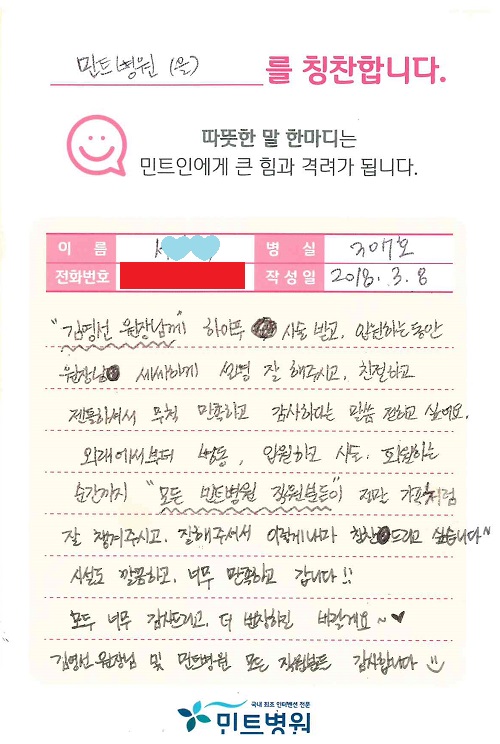 민트병원 (을)를 칭찬합니다.
따뜻한 말 한마디는
민트인에게 큰 힘과 격려가 됩니다.
이 름 병 실 307호
전화번호 작성일 2018. 3. 8
"김영선 원장님께" 하이푸 시술 받고, 입원하는동안
원장님 세세하게 설명 잘 해주시고, 친절하고
젠틀하셔서 무척 만족하고 감사하다는 말씀 전하고 싶어요.
외래에서부터 병동, 입원하고 시술, 회복하는
순간까지 "모든 민트병원 직원분들이 정말 가족처럼
잘 챙겨주시고, 잘해주셔서 이렇게나마 칭찬드리고 싶습니다~
시설도 깔끔하고, 너무 만족하고 갑니다!!
모두 너무 감사드리고, 더 번창하길 바랄게요~♥
김영선 원장님 및 민트병원 모든 직원분들 감사합니다
국내 최초 인터벤션 전문
민트병원